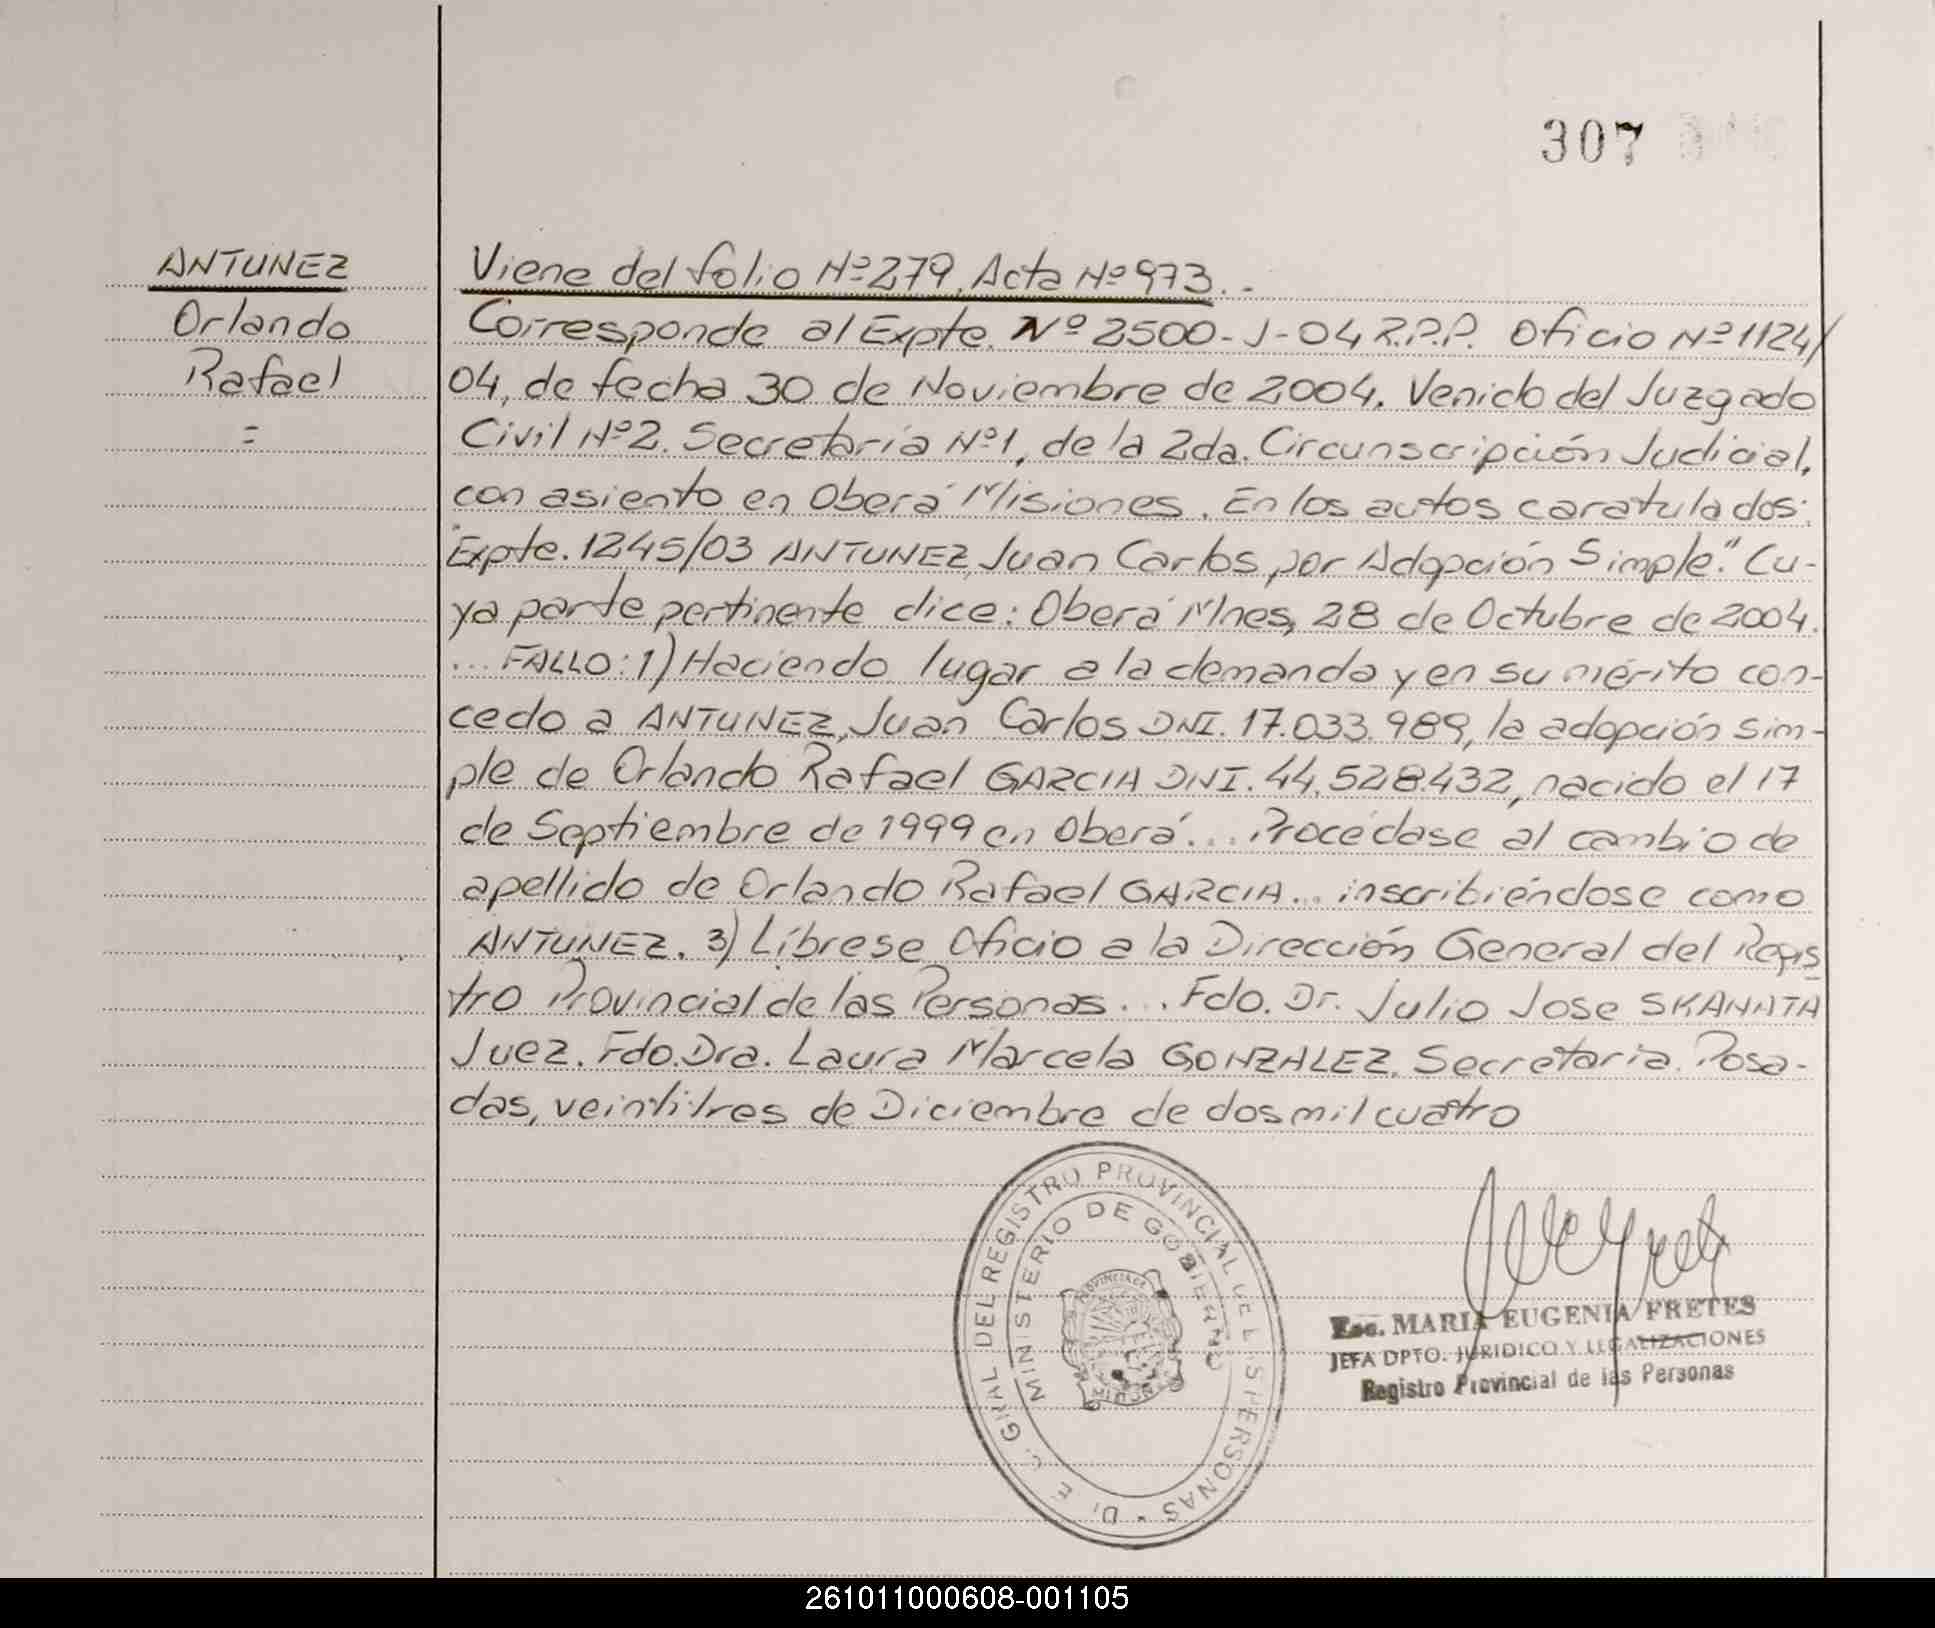 307
ANTUNEZ
Orlando
Rafael
=
Viene del folio Nº 279. Acta Nº 973. .-
Corresponde al Expte. Nº 2500-J-04 R.P.P. Oficio Nº 1124/
04, de fecha 30 de Noviembre de 2004. Venido del Juzgado
Civil Nº 2. Secretaría Nº 1, de la 2da. Circunscripción Judicial,
con asiento en Oberá Misiones. En los autos caratulados:
"Expte. 1245/03 ANTUNEZ, Juan Carlos por Adopción Simple". Cu-
ya parte pertinente dice: Oberá Mnes, 28 de Octubre de 2004.
... FALLO: 1) Haciendo lugar a la demanda y en su mérito con-
cedo a ANTUNEZ, Juan Carlos DNI. 17.033.989, la adopción sim-
ple de Orlando Rafael GARCIA DNI. 44.528.432, nacido el 17
de Septiembre de 1999 en Oberá... Procédase al cambio de
apellido de Orlando Rafael GARCIA... inscribiéndose como
ANTUNEZ. 3) Líbrese Oficio a la Dirección General del Regis
tro Provincial de las Personas... Fdo. Dr. Julio Jose SKANATA
Juez. Fdo. Dra. Laura Marcela GONZALEZ. Secretaria. Posa-
das, veintitres de Diciembre de dos mil cuatro
GRAL DEL REGISTRO PROVINCIAL DE LAS PERSONAS
MINISTERIO DE GOBIERNO
PROVINCIA DE
Esc. MARIA EUGENIA FRETES
JEFA DPTO. JURIDICO Y LEGALIZACIONES
Registro Provincial de las Personas
261011000608-001105